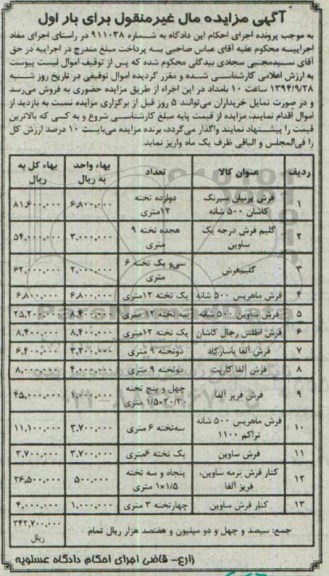 آگهی مزایده مال غیرمنقول برای بار اول
به موجب پرونده اجرای احکام این دادگاه به شماره ۹۱۱۰۳۸ در راستای اجرای مفاد
اجراییه محکوم علیه آقای عباس صاحبی به پرداخت مبلغ مندرج در اجراییه در حق
آقای سیدمجتبی سجادی بیدگلی محکوم شده که پس از توقیف اموال لیست پیوست
به ارزش اعلامی کارشناسی شده و مقرر گردیده اموال توقیفی در تاریخ روز شنبه
۱۳۹۴/۹/۲۸ ساعت ۱۰ بامداد در این اجراء از طریق مزایده حضوری به فروش می‌رسد
و در صورت تمایل خریداران می‌توانند ۵ روز قبل از برگزاری مزایده نسبت به بازدید از
اموال اقدام نمایند، مزایده از قیمت پایه مبلغ کارشناسی شروع و به کسی که بالاترین
قیمت را پیشنهاد نمایند واگذار می‌گردد، برنده مزایده می‌بایست ۱۰ درصد ارزش کل
را فی‌المجلس و الباقی ظرف یک ماه واریز نماید.
ردیف عنوان کالا تعداد بهاء واحد به ریال بهاء کل به ریال
۱ فرش پرنیان سبزنگ کاشان ۵۰۰ شانه دوازده تخته ۱۲متری ۶,۸۰۰,۰۰۰ ۸۱,۶۰۰,۰۰۰
۲ گلیم فرش درجه یک ساوین هجده تخته ۹ متری ۳,۰۰۰,۰۰۰ ۵۴,۰۰۰,۰۰۰
۳ گلیم‌فرش سی‌و یک تخته ۶ متری ۲,۰۰۰,۰۰۰ ۶۲,۰۰۰,۰۰۰
۴ فرش ماهریس ۵۰۰ شانه یک تخته ۱۲متری ۶,۸۰۰,۰۰۰ ۶,۸۰۰,۰۰۰
۵ فرش ساوین ۵۰۰ شانه سه تخته ۱۲ متری ۸,۴۰۰,۰۰۰ ۲۵,۲۰۰,۰۰۰
۶ فرش اطلس رجال کاشان یک تخته ۱۲متری ۸,۴۰۰,۰۰۰ ۸,۴۰۰,۰۰۰
۷ فرش آلفا پاسارگاد دوتخته ۹ متری ۳,۲۰۰,۰۰۰ ۶,۴۰۰,۰۰۰
۸ فرش آلفا کارپت دوتخته ۹ متری ۴,۰۰۰,۰۰۰ ۸,۰۰۰,۰۰۰
۹ فرش فریز آلفا چهل و پنج تخته ۱,۰۰۰,۰۰۰ ۴۵,۰۰۰,۰۰۰
۱۰ فرش ماهریس ۵۰۰ شانه تراکم ۱۱۰۰ سه‌تخته ۶ متری ۳,۷۰۰,۰۰۰ ۱۱,۱۰۰,۰۰۰
۱۱ فرش ساوین یک تخته ۶متری ۳,۷۰۰,۰۰۰ ۳,۷۰۰,۰۰۰
۱۲ کنار فرش ترمه ساوین، فریز آلفا پنجاه و سه تخته ۱×۱/۵ متری ۵۰۰,۰۰۰ ۲۶,۵۰۰,۰۰۰
۱۳ کنار فرش ساوین چهارتخته ۳ متری ۱,۰۰۰,۰۰۰ ۴,۰۰۰,۰۰۰
جمع: سیصد و چهل و دو میلیون و هفتصد هزار ریال تمام ۳۴۲,۷۰۰,۰۰۰ ریال
زارع- قاضی اجرای احکام دادگاه عسلویه